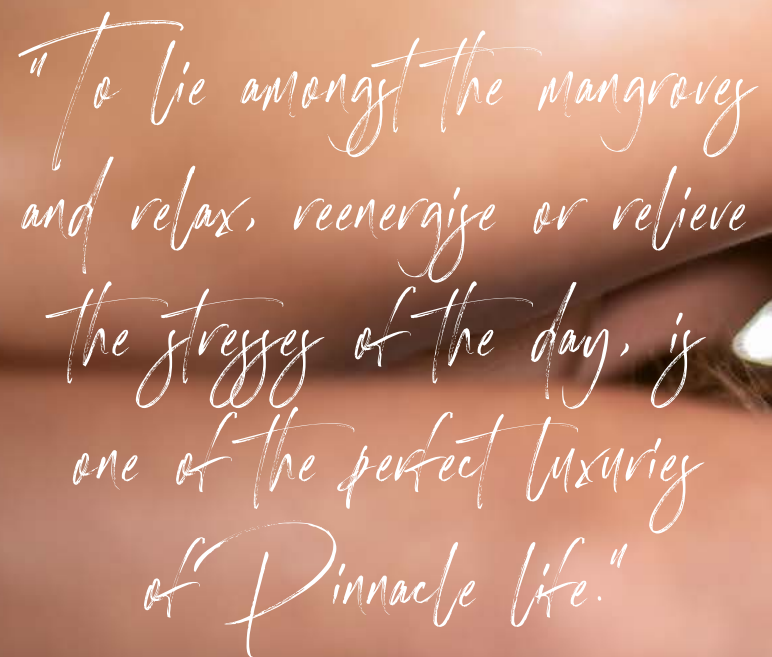 "To lie amongst the mangroves
and relax, reenergise or relieve
the stresses of the day, is
one of the perfect luxuries
of Pinnacle life."